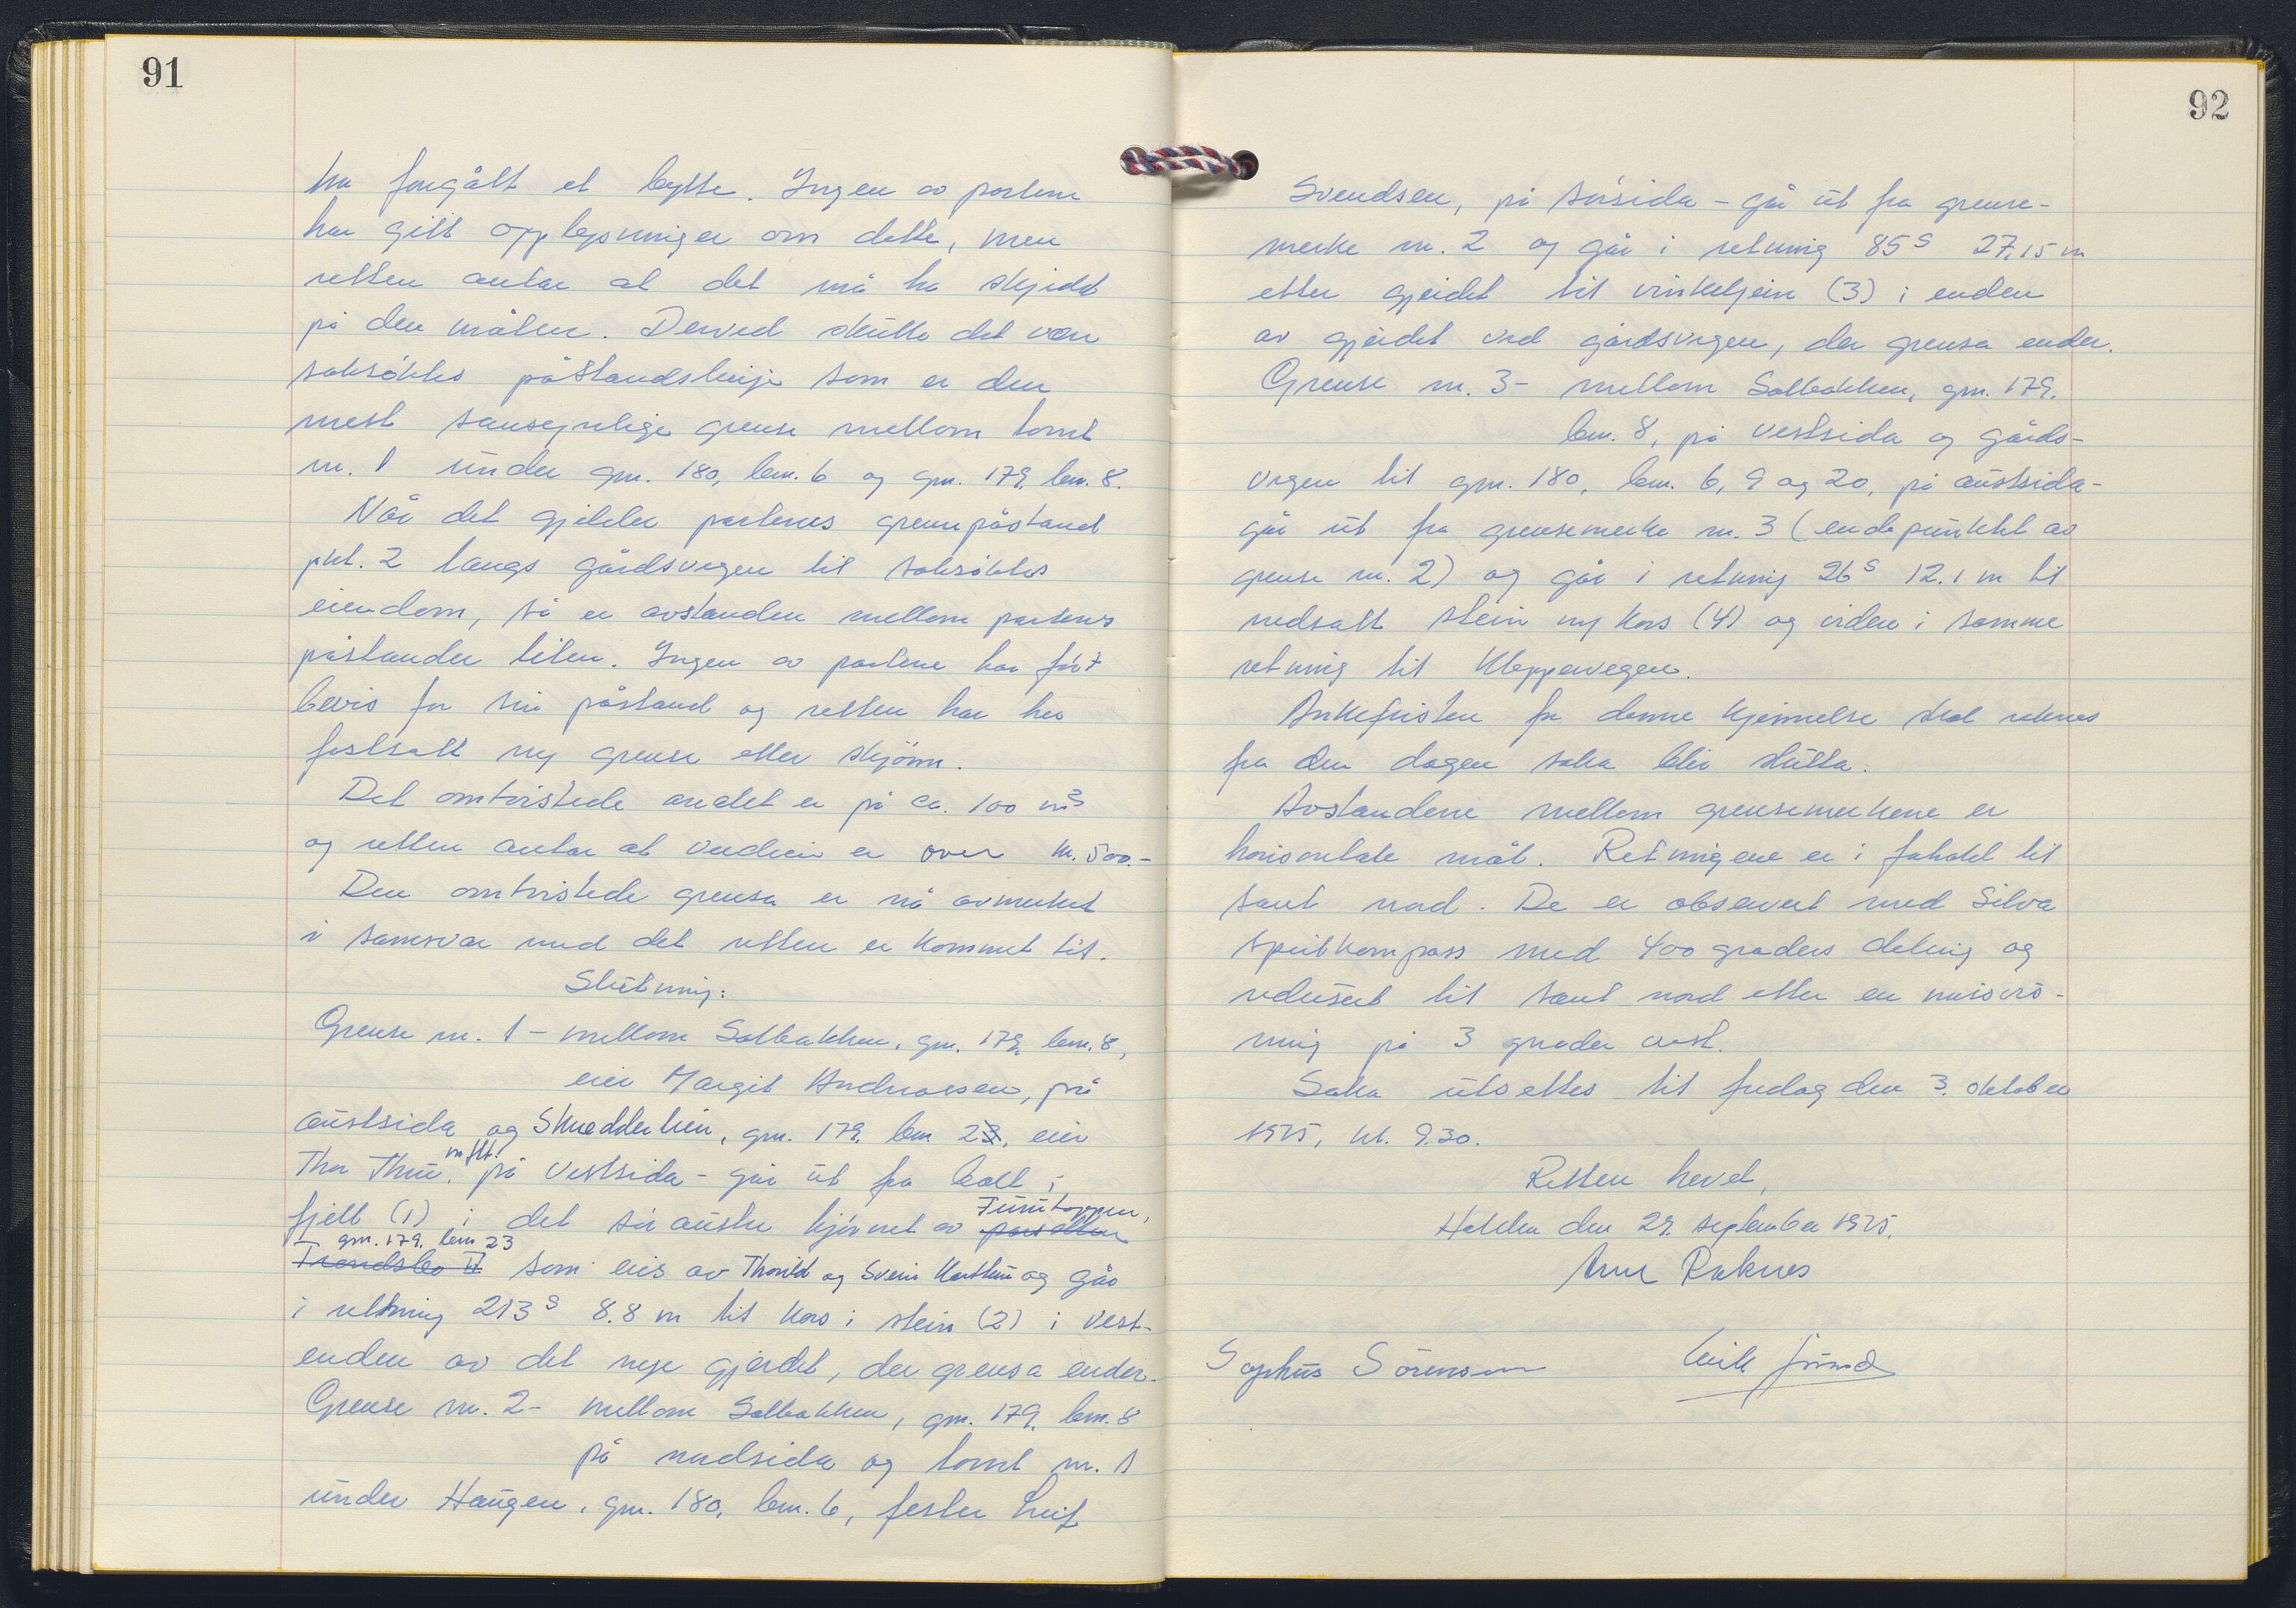 91
ha foregått et bytte. Ingen av partene
har gitt opplysninger om dette, men
retten antar at det må ha skjedd
på den måten. Derved skulle det være
saksøktes påstandslinje som er den
mest sansynlige grense mellom tomt
nr. 1 under gnr. 180, bnr. 6 og gnr. 179, bnr. 8.
Når det gjelder partenes grensepåstand
pkt. 2 langs gårdsvegen til saksøktes
eiendom, så er avstanden mellom partenes
påstander liten. Ingen av partene har ført
bevis for sin påstand og retten har her
fastsatt ny grense etter skjønn.
Det omtvistede arealet er på ca. 100 m²
og retten antar at verdien er over kr. 500.-
Den omtvistede grensa er nå avmerket
i samsvar med det retten er kommet til.
Slutning:
Grense nr. 1 - mellom Solbakken, gnr. 179, bnr. 8,
eier Margit Andreassen, på
austsida og Skredderlien, gnr. 179, bnr. 23, eier
Thor Thue, m.fl. på vestsida - går ut fra bolt i
fjell (1) i det søraustre hjørnet av parsellen Furutoppen,
gnr. 179, bnr 23
Trondsbo II som eies av Thorild og Svein Karlhus og går
i retning 213g 8.8 m til kors i stein (2) i vest-
enden av det nye gjerdet, der grensa ender.
Grense nr. 2 - mellom Solbakken, gnr. 179, bnr. 8
på nordsida og tomt nr. 1
under Haugen, gnr. 180, bnr. 6, fester Leif
92
Svendsen, på sørsida - går ut fra grense-
merke nr. 2 og går i retning 85g 27,15 m
etter gjerdet til vinkeljern (3) i enden
av gjerdet ved gårdsvegen, der grensa ender.
Grense nr. 3 - mellom Solbakken, gnr. 179,
bnr. 8, på vestsida og gårds-
vegen til gnr. 180, bnr. 6, 9 og 20, på austsida -
går ut fra grensemerke nr. 3 (endepunktet av
grense nr. 2) og går i retning 26g 12.1 m til
nedsatt stein m/kors (4) og videre i samme
retning til Kleppervegen.
Ankefristen for denne kjennelse skal reknes
fra den dagen saka blir slutta.
Avstandene mellom grensemerkene er
horisontale mål. Retningene er i forhold til
sant nord. De er observert med Silva
speilkompass med 400 graders deling og
redusert til sant nord etter en misvis-
ning på 3 grader vest.
Saka utsettes til fredag den 3. oktober
1975, kl. 9.30.
Retten hevet,
Halden den 29. september 1975.
Arne Raknes
Sophus Sørensen